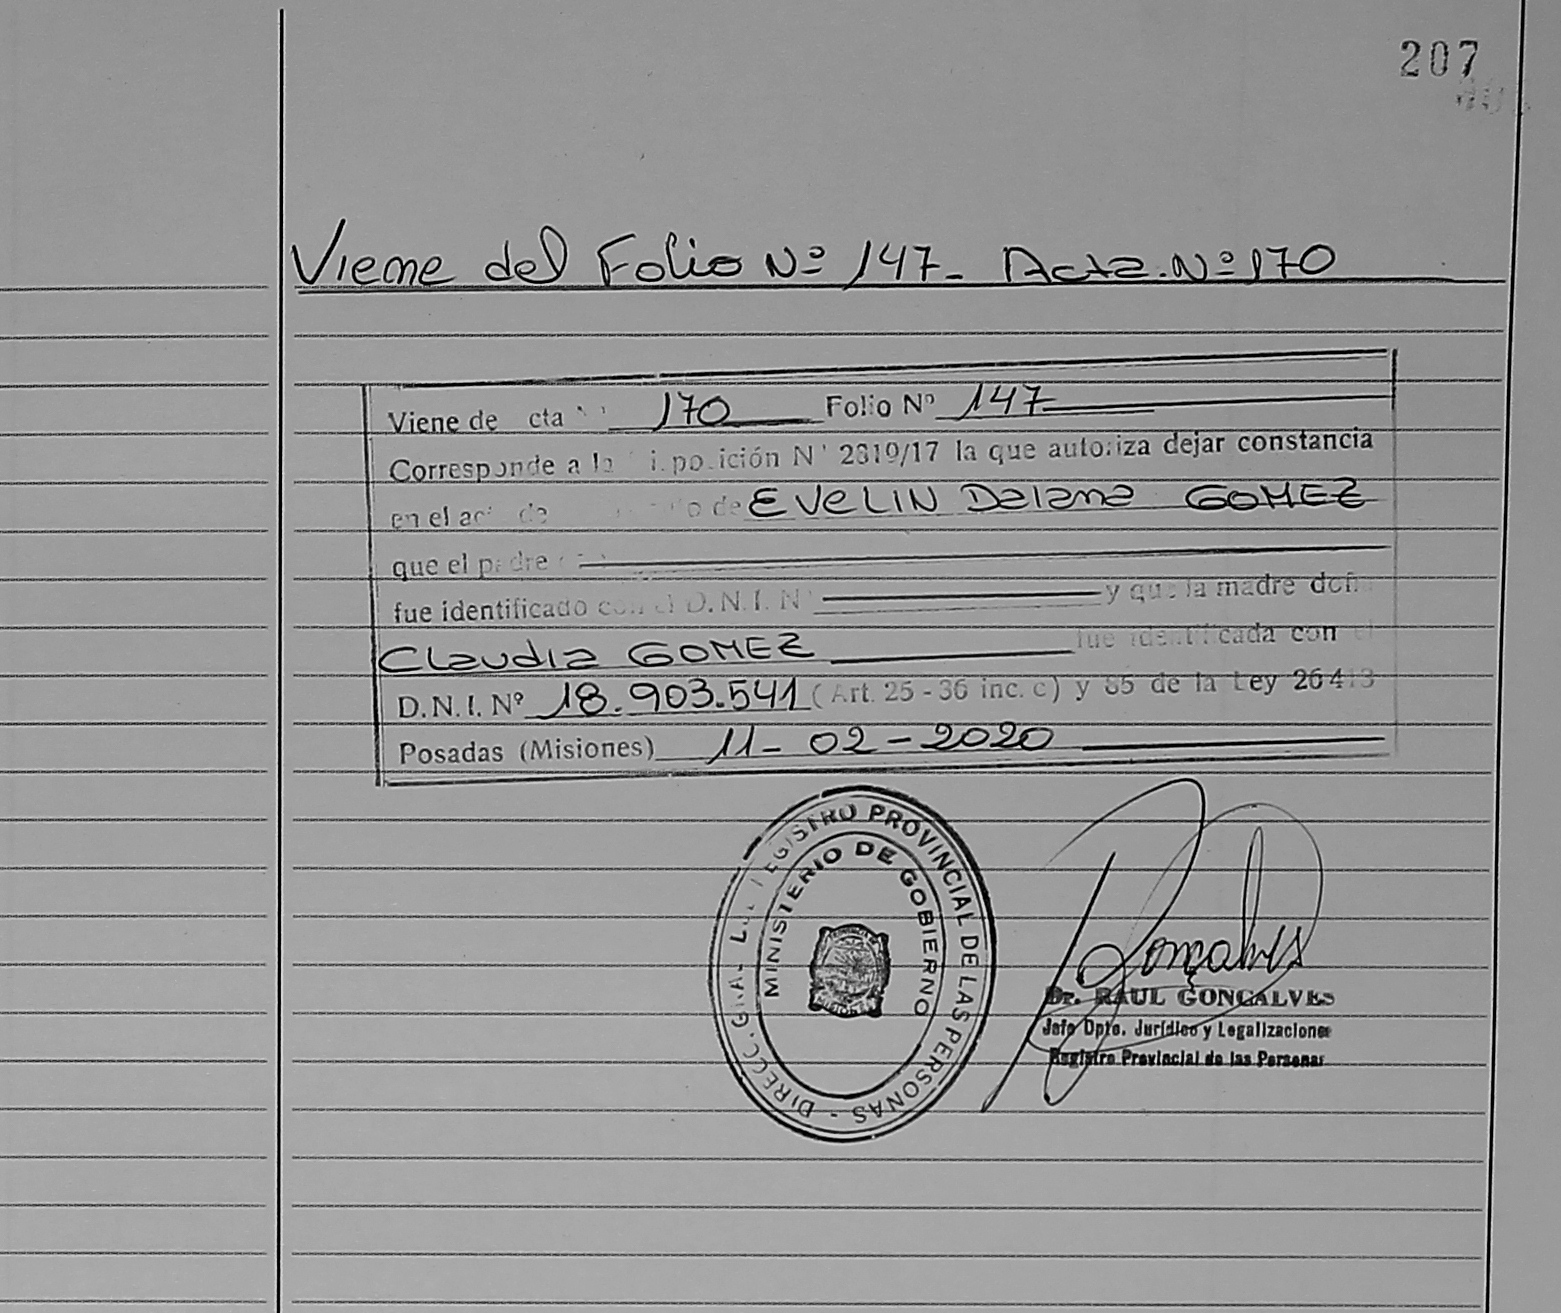 207
Viene del Folio Nº 147- Acta Nº 170
Viene de cta 170 Folio Nº 147
Corresponde a la N° 2810/17 la que autoriza dejar constancia
en el de EVELIN Daiana GOMEZ
que el padre
fue identificado con el D.N.I. N° y que la madre doña
Claudia GOMEZ fue identificada con el
D.N.I. Nº 18.903.541 (Art. 25 - 36 inc. c) y 85 de la Ley 26413
Posadas (Misiones) 11-02-2020
DIRECC. GRAL. REGISTRO PROVINCIAL DE LAS PERSONAS -
MINISTERIO DE GOBIERNO
Gonçalves
Dr. RAUL GONCALVES
Jefe Dpto. Jurídico y Legalizaciones
Registro Provincial de las Personas